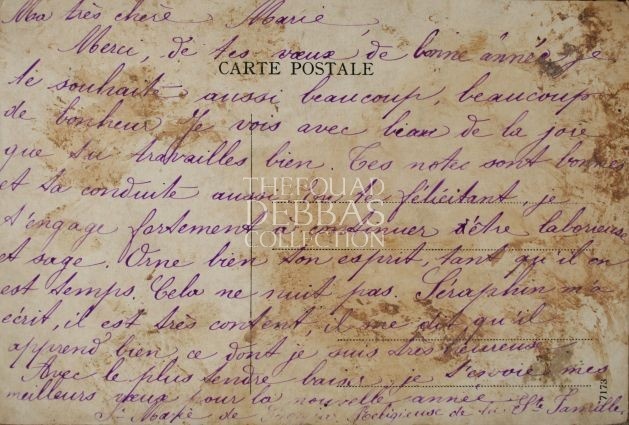 Ma très chère Marie,
Merci, de tes vœux de bonne année je
CARTE POSTALE
te souhaite aussi beaucoup, beaucoup
de bonheur. Je vois avec beau de la joie
que tu travailles bien. Tes notes sont bonnes
et ta conduite aussi. En te félicitant, je
THE FOUAD
DEBBAS
COLLECTION
t'engage fortement à continuer d'être laborieuse
et sage. Orne bien ton esprit, tant qu'il en
est temps. Cela ne nuit pas. Séraphin m'a
écrit, il est très content il me dit qu'il
apprend bien ce dont je suis très heureuse.
Avec le plus tendre baiser, je t'envoie mes
meilleurs vœux pour la nouvelle année.
Sr Marie de Religieuse de la Ste Famille
7173